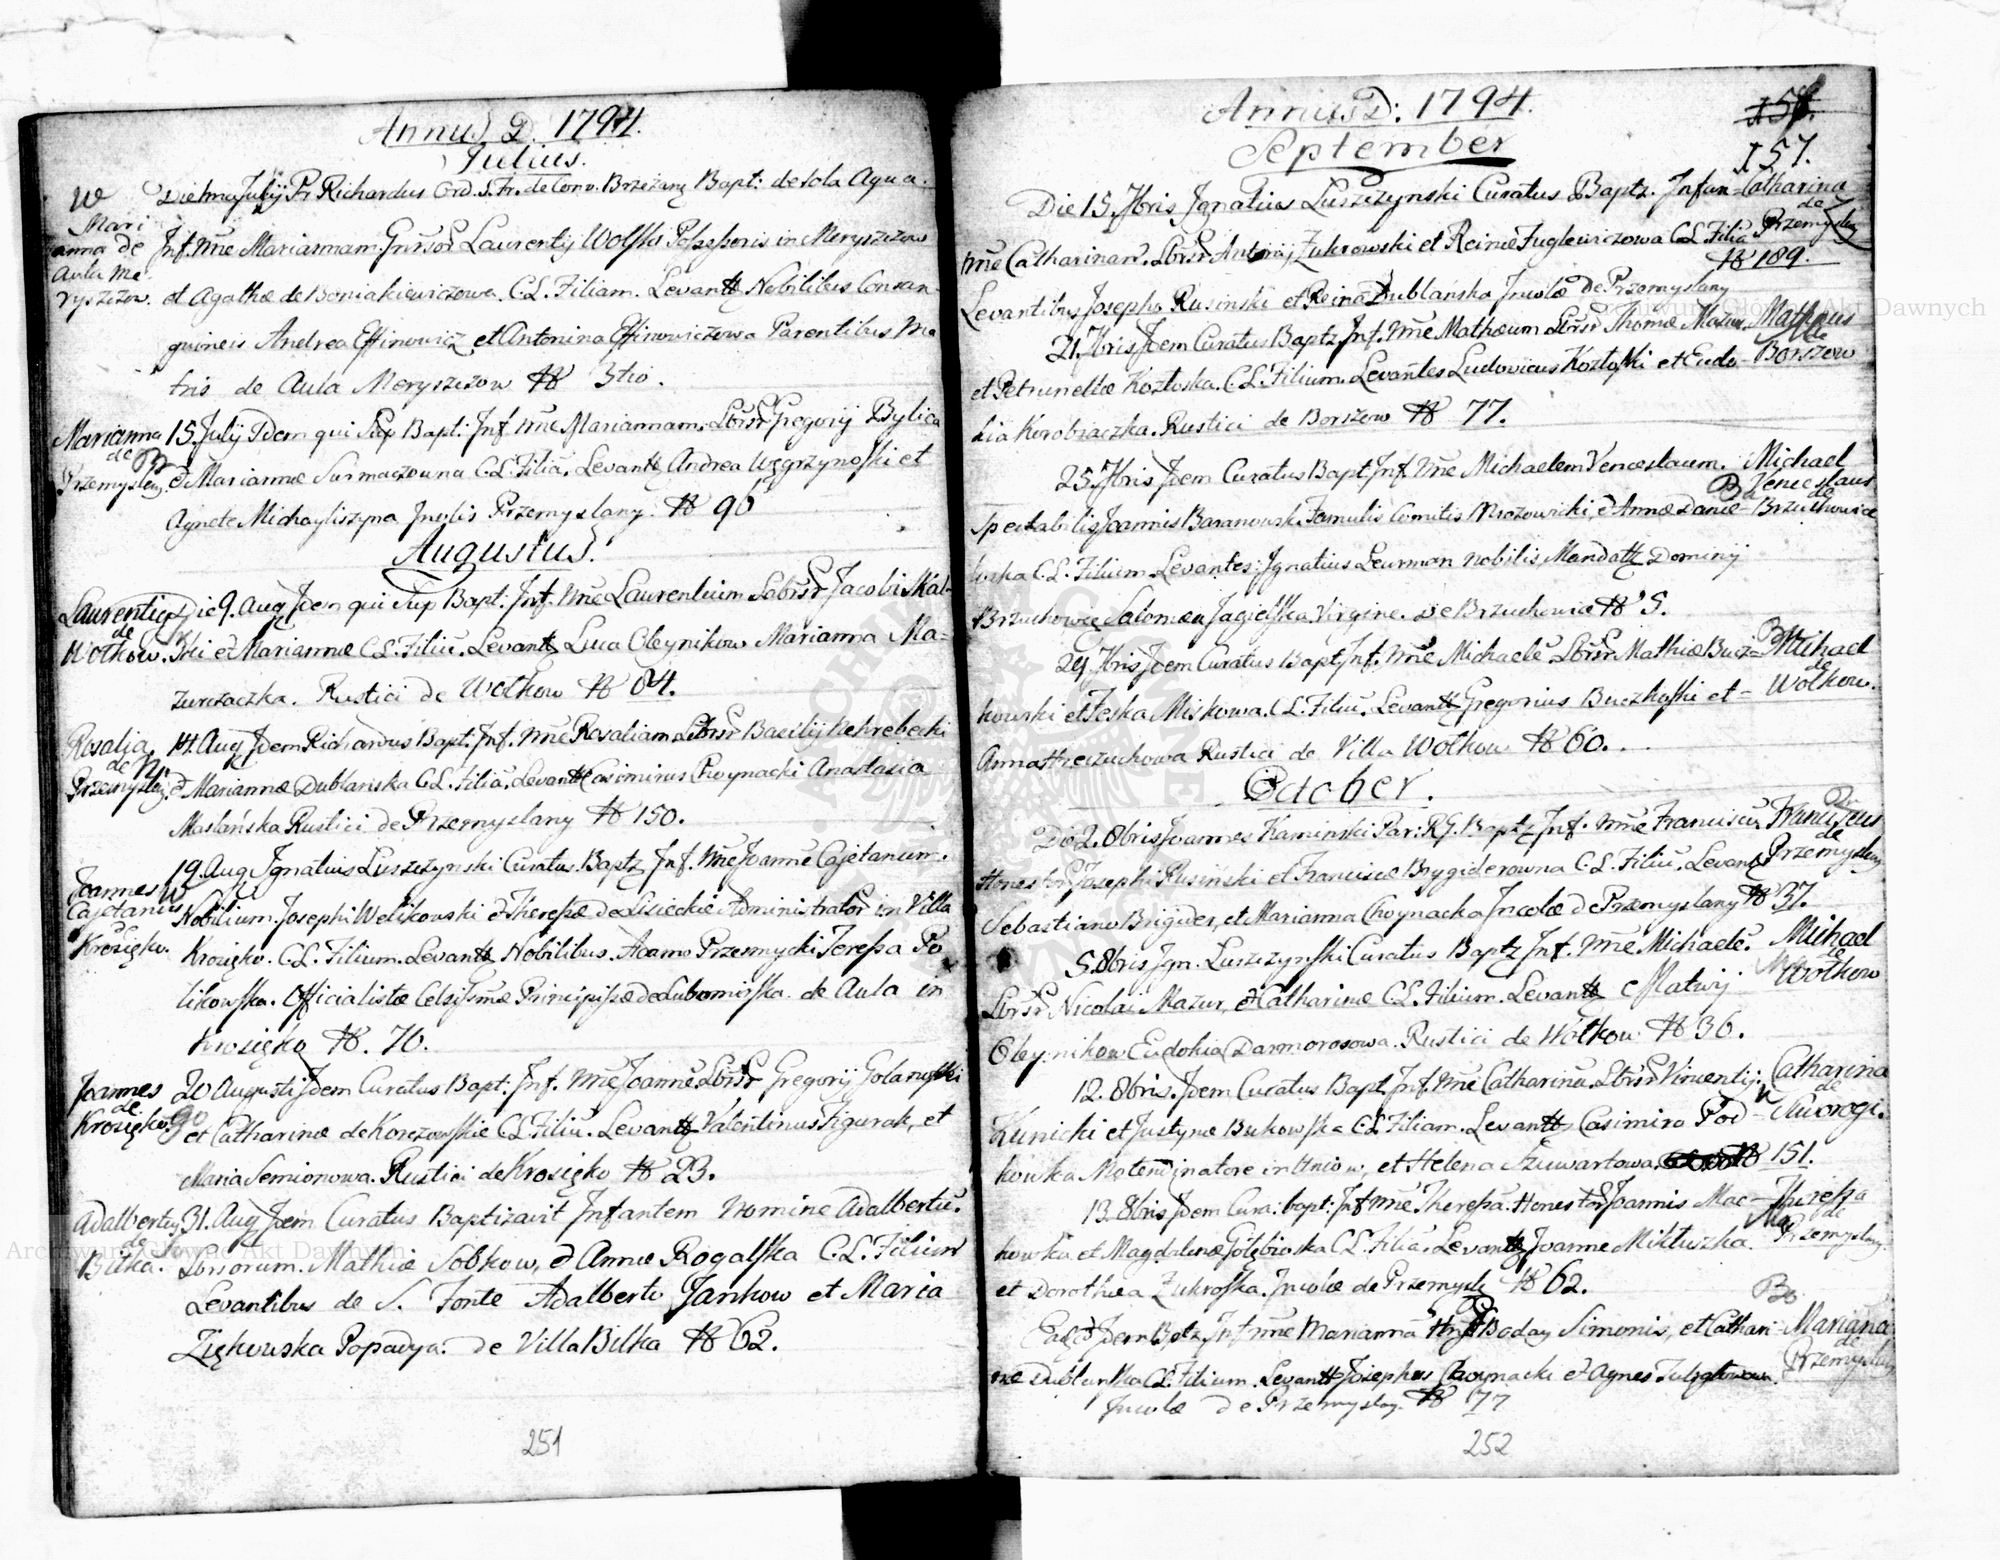 Annus D. 1794.
Julius.
W
Mari
anna de
Aula Me
ryszczow.
Die 1ma Julij Pr Richardus Ord. S. Fr. de Conv. Brzeżany Bapt: de sola Aqua.
Inf. Nne Mariannam. Laurentij Wolski Possessoris in Meryszczow
et Agathæ de Boniakiewiczowa. C. L. Filiam. Levantt Nobilibus Consan-
guineis Andrea Effinowicz et Antonina Effinowiczowa Parentibus Ma
tris de Aula Meryszczow № 3tio.
Marianna
de
Przemyslany.
15. Julij Idem qui Sup Bapt: Inf Nne Mariannam. Lbrsr Gregorij Bylica
et Mariannæ Surmaczowna C. L. Filiā. Levantt Andrea Węgrzynoski et
Agnete Michayliszyna Incolis Przemyslany. № 96
Augustus.
Laurentius
de
Wołkow.
Die 9. Aug Idem qui Sup Bapt: Inf. Nne Laurentium Lobrsr Jacobi Skal-
ski et Mariannæ C. L. Filiū. Levantt Luca Oleynikow Marianna Ma=
zurczaczka. Rustici de Wołkow № 64.
Rosalia
de
Przemyslany.
14. Aug Idem Richardus Bapt: Inf. Nne Rosaliam Lbrsr Basilij Nehrebecki
et Mariannæ Dublanska C. L. Filiā. Levantt Casimirus Choynacki Anastasia
Maslańska Rustici de Przemyslany № 150.
Joannes W
Cajetanus
Krosięko.
19. Aug Ignatius Luszczynski Curatus Baptz Inf. Nne Joannē Cajetanum.
Nobilium. Josephi Welikowski et Theresæ de Lisieckie Administrator in Villa
Krosięko. C. L. Filium. Levantt Nobilibus. Adamo Przemycki Teressa Po
likowska. Officialistæ Celsissmæ Principissæ de Lubomirska. de Aula in
Krosięko № 70.
Joannes
de
Krosięko
20 Augusti Idem Curatus Bapt: Inf. Nne Joannē. Lbrsr Gregorij Golanyski
et Catharinæ de Korczowskie C L Filiū. Levantt Valentinus Figurak, et
Maria Semionowa. Rustici de Krosięko № 23.
Adalbertus
de
Bilka.
31. Aug Idem Curatus Baptizavit Infantem Nomine Adalbertū.
Lbrsorum. Mathiæ Sobkow, et Annæ Rogalska C. L. Filium
Levantibus de S. Fonte Adalberto Jankow et Maria
Ziękowska Popadya. de Villa Bilka № 62.
251
Annus D: 1794.
September
157.
Die 15. 7bris Ignatius Luszczynski Curatus Baptz. Infan-
nne Catharinam. Lbrsr Antonij Zukrowski et Reinæ Fuglewiczowa C. L. Filiā
Levantibus Josepho Rusinski et Reina Dublańska Incolæ de Przemyslany
Catharina
de
Przemyslany
№ 189.
21. 7bris Idem Curatus Baptz Inf. Nne Mathæum Lbrsr Thomæ Mazur
et Petrunellæ Kozłoska. C. L. Filium. Levantes Ludovicus Kozłoski et Eudo-
kia Korobiaczka. Rustici de Borszow № 77.
Mathæus
de
Borszow
25. 7bris Idem Curatus Bapt Inf Nne Michaelem Venceslaum.
Spectabilis Joannis Baranowski Famulis Comitis Mrozowicki, et Annæ Danie-
luska C. L. Filium. Levantes: Ignatius Leurman nobilis Mandatt Dominij
Brzuchowce Salomea Jagielska Virgine. de Brzuchowice № 5.
Michael
Venceslaus
de
Brzuchowice
29 7bris Idem Curatus Bapt Inf. Nne Michaelē. Lbrsr Mathiæ Bucz-
kowski et Feska Miskowa. C L. Filiū. Levantt Gregorius Buczkoski et
Anna Hreczuchowa Rustici de Villa Wołkow № 60.
Michael
de
Wołkow.
October.
Die 2. 8bris Joannes Kaminski Par: R G. Baptz Inf. Nne Franciscū
Honestor Josephi Rusinski et Franciscæ Brygiderowna C. L. Filiū. Levantt
Sebastiano Brigider, et Marianna Choynacka Incolæ de Przemyslany № 37.
Franciscus
de
Przemyslany
5. 8bris Ign. Luszczynski Curatus Baptz Inf. Nne Michaelē.
Lbrsr Nicolai Mazur, et Catharinæ C L. Filium. Levantt Matwij
Oleynikow Eudokia Darmorosowa. Rustici de Wołkow № 36.
Michael
de
Wołkow
12. 8bris. Idem Curatus Bapt Inf. Nne Catharinā. Lbrsr Vincentij
Kunicki et Justynæ Bukowska C. L. Filiam. Levantt Casimiro Pod-
kowka et Helena Szuwartowa № 151.
Catharina
de
13. 8bris Idem Cura: bapt: Inf Nne Theressā. Honestor Joannis Mac-
kowka et Magdalenæ Gołębioska C L. Filiā. Levantt Joanne Mikłuszka
et Dorothea Zukroska. Incolæ de Przemysly № 62.
Theressa
de
Przemyslany
Idem Bptz Inf nne Mariannā Boday Simonis, et Cathari-
næ Dublanska C. L. Filium. Levantt Josephus Choynacki et Agnes
Incolæ de Przemyslany № 77
Marianna
de
Przemyslany
252
Archiwum Główne Akt Dawnych